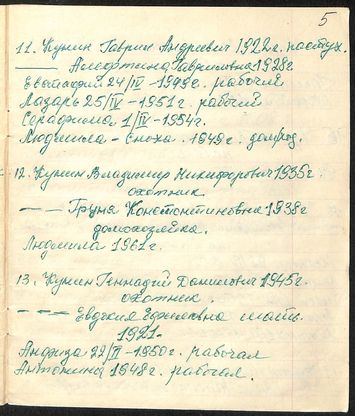 5
11. Кунин Гаврил Андреевич 1922г. пастух.
—— Алефтина Гавриловна 1928г
Евстафий 24/IV - 1949г. рабочий
Лазарь 25/IV - 1951г. рабочий
Серафима 1/IV - 1954г.
Людмила - сноха. 1949г. домхоз.
12. Кунин Владимир Никифорович 1935г.
охотник
— — Груня Константиновна 1938г
домохозяйка.
Людмила 1961г.
13. Кунин Геннадий Данилович 1945г.
охотник.
— — — Евдокия Ефимовна мать
1921.
Анфиза 22/II - 1950г. рабочая
Антонина 1948г. рабочая.